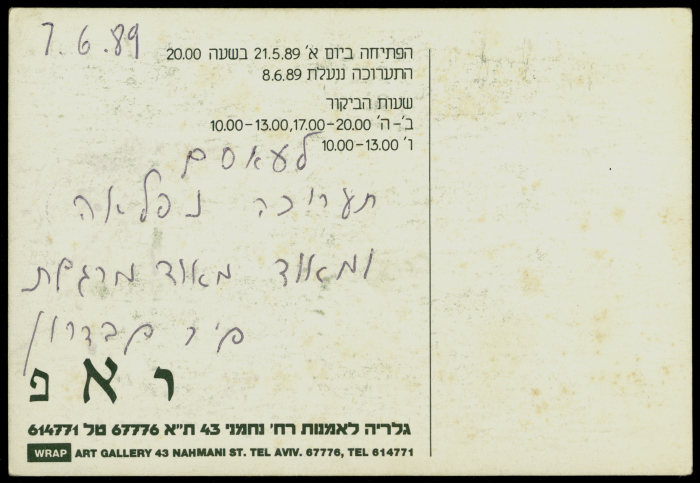 7.6.89
הפתיחה ביום א' 21.5.89 בשעה 20.00
התערוכה ננעלת 8.6.89
שעות הביקור
ב'-ה' 17.00-20.00, 10.00-13.00
ו' 10.00-13.00
לעאסם
תערוכה נפלאה
ומאוד מאוד מרגשת
ראפ
גלריה לאמנות רח' נחמני 43 ת"א 67776 טל 614771
WRAP ART GALLERY 43 NAHMANI ST. TEL AVIV. 67776, TEL 614771